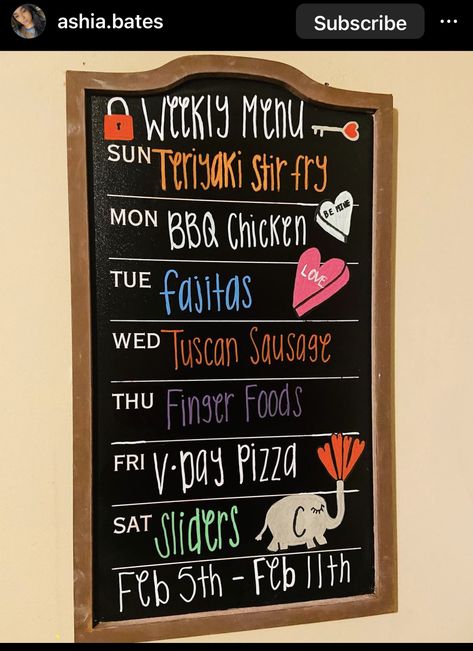 ashia.bates
Subscribe
Weekly Menu
SUN Teriyaki Stir fry
BE MINE
MON BBQ Chicken
TUE fajitas
LOVE
WED Tuscan Sausage
THU Finger Foods
FRI V•Day Pizza
SAT Sliders
C
Feb 5th - Feb 11th